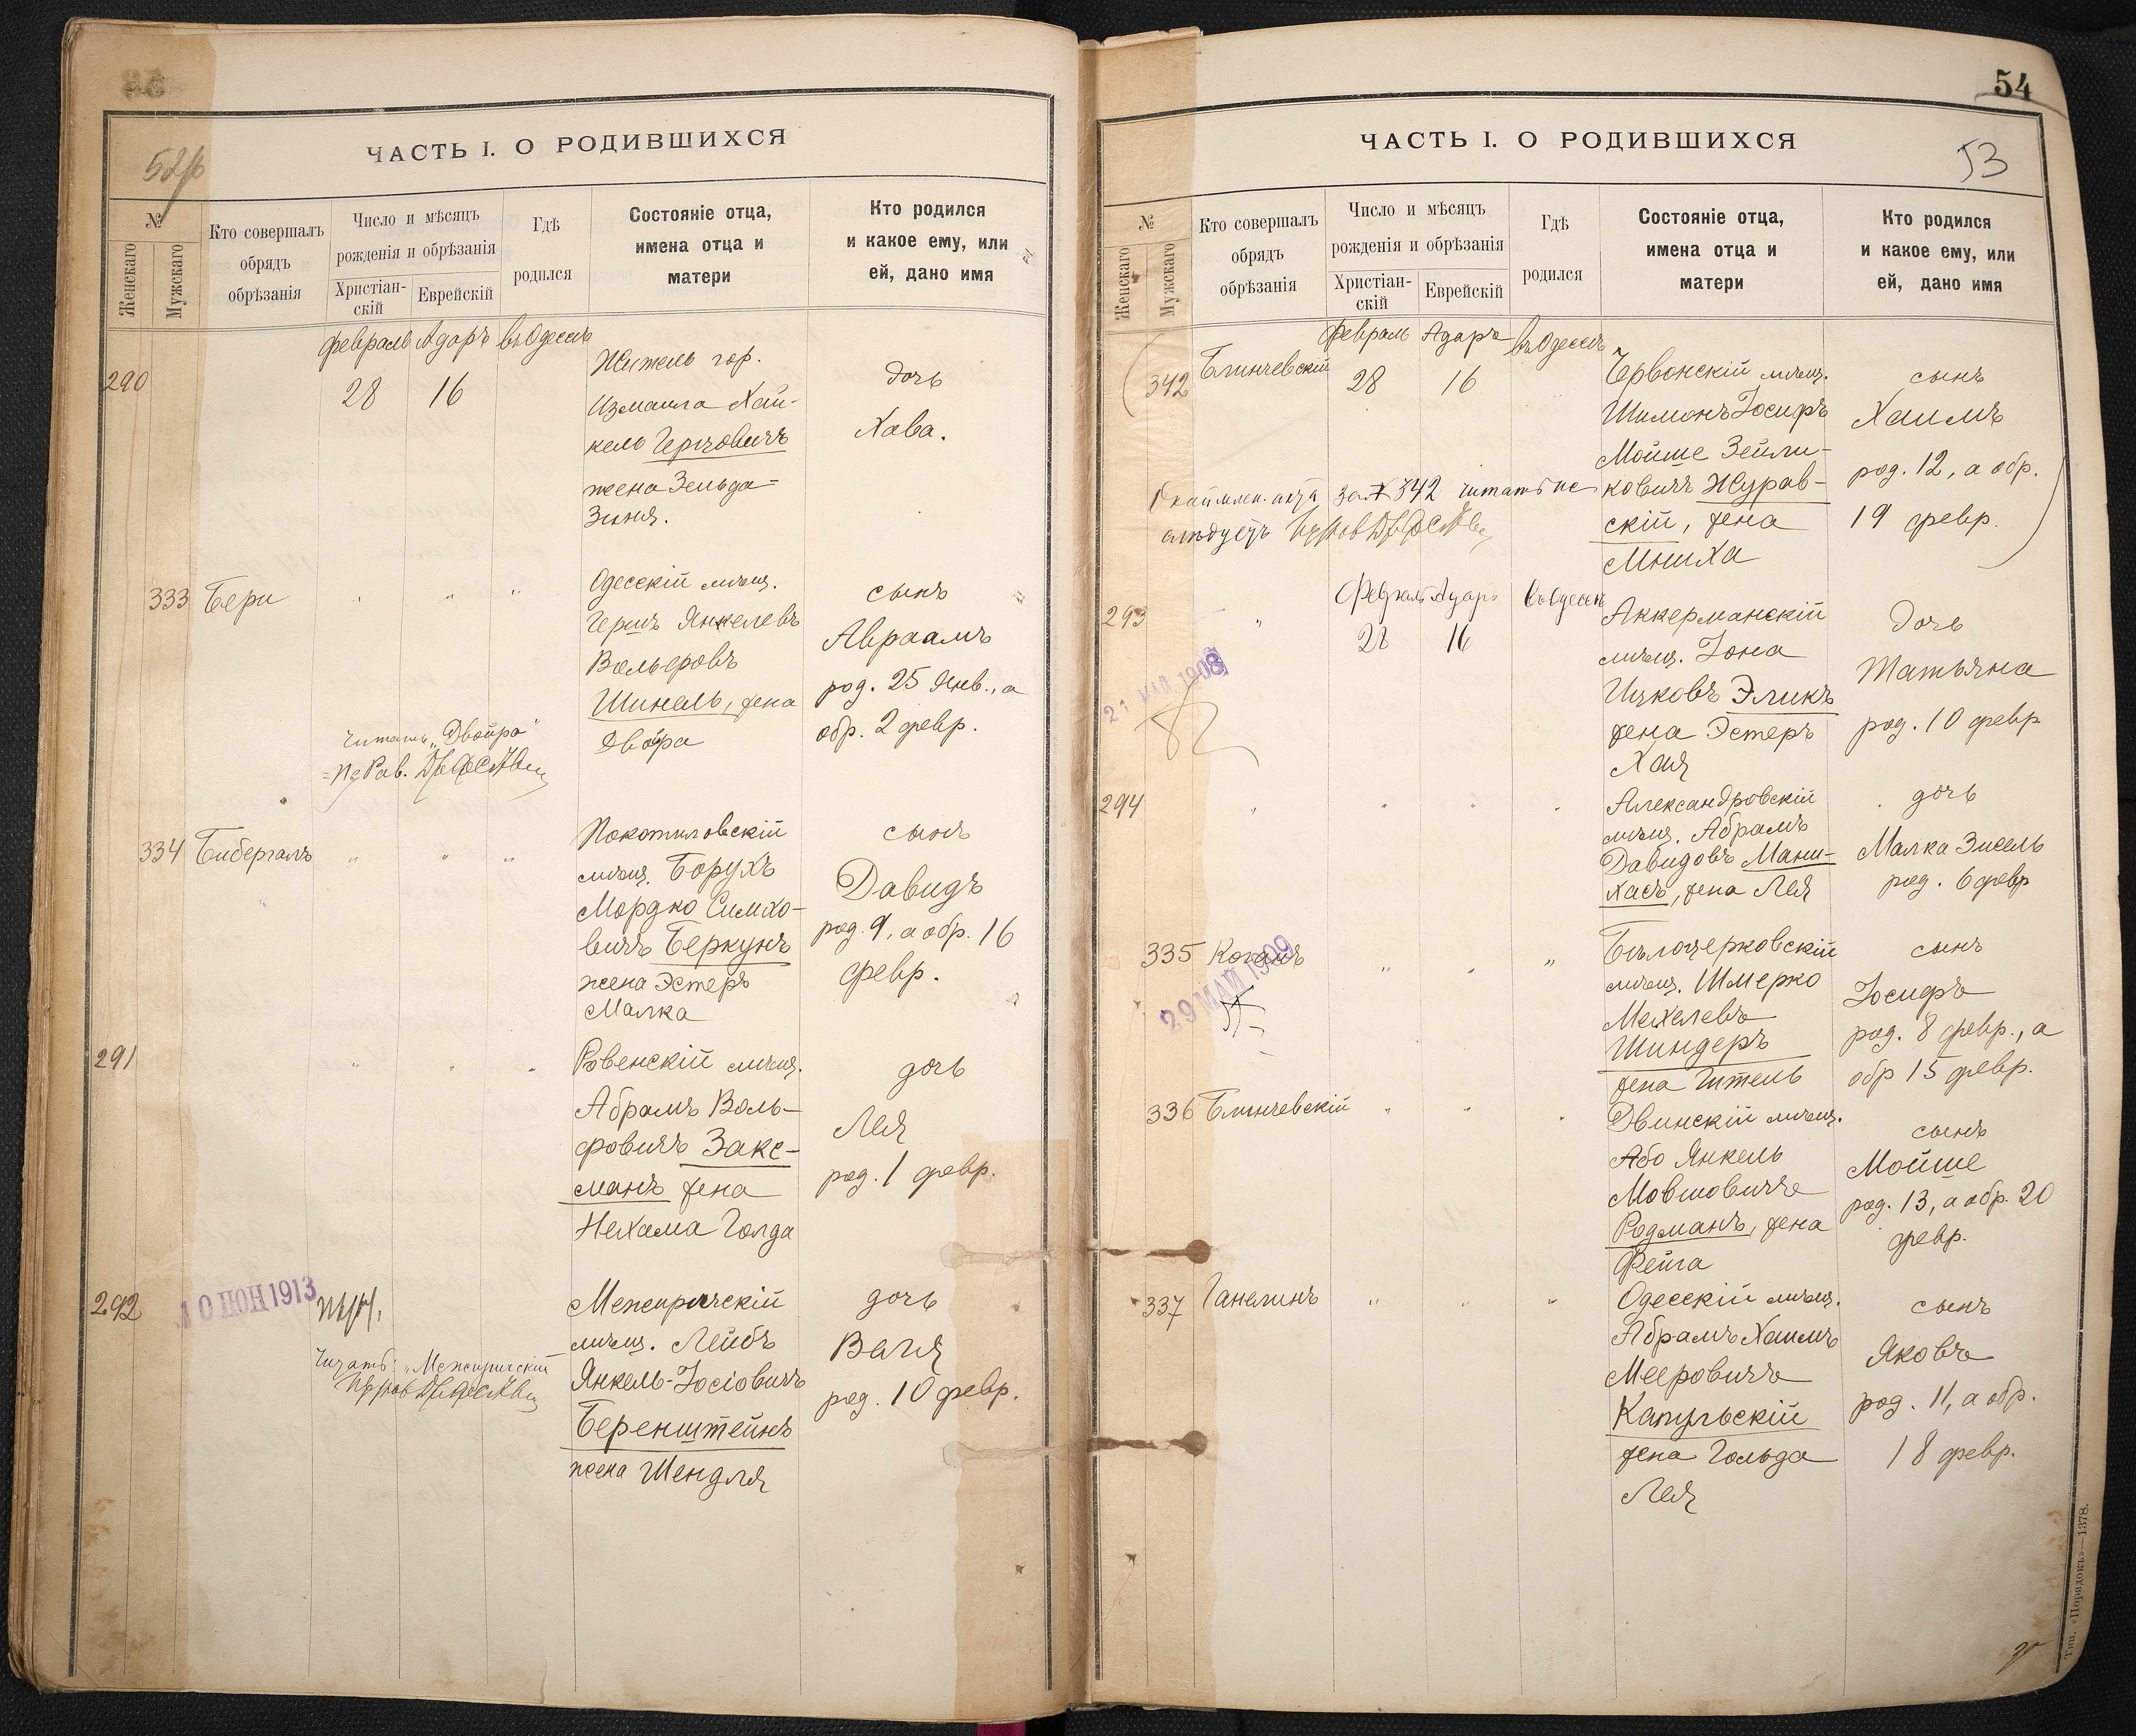 ЧАСТЬ I. О РОДИВШИХСЯ
№
Женскаго
Мужскаго
Кто совершалъ
обрядъ
обрѣзанія
Число и мѣсяцъ
рожденія и обрѣзанія
Христіан-
скій
Еврейскій
Гдѣ
родился
Состояніе отца,
имена отца и
матери
Кто родился
и какое ему, или
ей, дано имя
февраль Адаръ въ Одессѣ
290
28 16
Житель гор.
Измаила Хай-
кель Гершовичъ
жена Зельда=
Зыня.
дочь
Хава.
333 Бери
Одесскій мѣщ.
Гершъ Янкелевъ
Вольфовъ
Шинель, жена
Двойра
сынъ
Авраамъ
род. 25 Янв., а
обр. 2 февр.
читать „Двойра"
334 Бибергалъ
Покотиловскій
мѣщ. Борухъ
Мордко Симхо-
вичъ Беркунъ
жена Эстеръ
Малка
сынъ
Давидъ
род. 9, а обр. 16
февр.
291
Ровенскій мѣщ.
Абрамъ Воль-
фовичъ Закс-
манъ жена
Нехама Голда
дочь
Лея
род. 1 февр.
292
10 ІЮН 1913
Межиричскій
мѣщ. Лейбъ
Янкель-Іосіовичъ
Беренштейнъ
жена Шендля
дочь
Баля
род. 10 февр.
Читать: „Межиричскій
54
ЧАСТЬ I. О РОДИВШИХСЯ
53
№
Женскаго
Мужскаго
Кто совершалъ
обрядъ
обрѣзанія
Число и мѣсяцъ
рожденія и обрѣзанія
Христіан-
скій
Еврейскій
Гдѣ
родился
Состояніе отца,
имена отца и
матери
Кто родился
и какое ему, или
ей, дано имя
февраль Адаръ въ Одессѣ
342 Блинчевскій
28 16
Червонскій мѣщ.
Шимонъ Іосифъ
Мойше Зейли-
ковичъ Журав-
скій, жена
Мниха
сынъ
Хаимъ
род. 12, а обр.
19 февр.
акта за № 342 читать не
слѣдуетъ
Февраль Адаръ въ Одессѣ
293
28 16
Аккерманскій
мѣщ. Іона
Ицковъ Эликъ
жена Эстеръ
Хая
дочь
Татьяна
род. 10 февр
21 МАЯ 1908
294
Александровскій
мѣщ. Абрамъ
Давидовъ Мани-
хасъ, жена Лея
дочь
Малка Зисель
род. 6 февр
335 Коганъ
29 МАЙ 1909
Бѣлоцерковскій
мѣщ. Шмерко
Мехелевъ
Шиндеръ
жена Гитель
сынъ
Іосифъ
род. 8 февр., а
обр 15 февр.
336 Блинчевскій
Двинскій мѣщ.
Або Янкель
Мовшовичъ
Родманъ, жена
Фейга
сынъ
Мойше
род. 13, а обр. 20
февр.
337 Ганелинъ
Одесскій мѣщ.
Абрамъ Хаимъ
Мееровичъ
Капульскій
жена Гольда
Лея
сынъ
Яковъ
род. 11, а обр.
18 февр.
Тип. «Порядокъ»—1378.